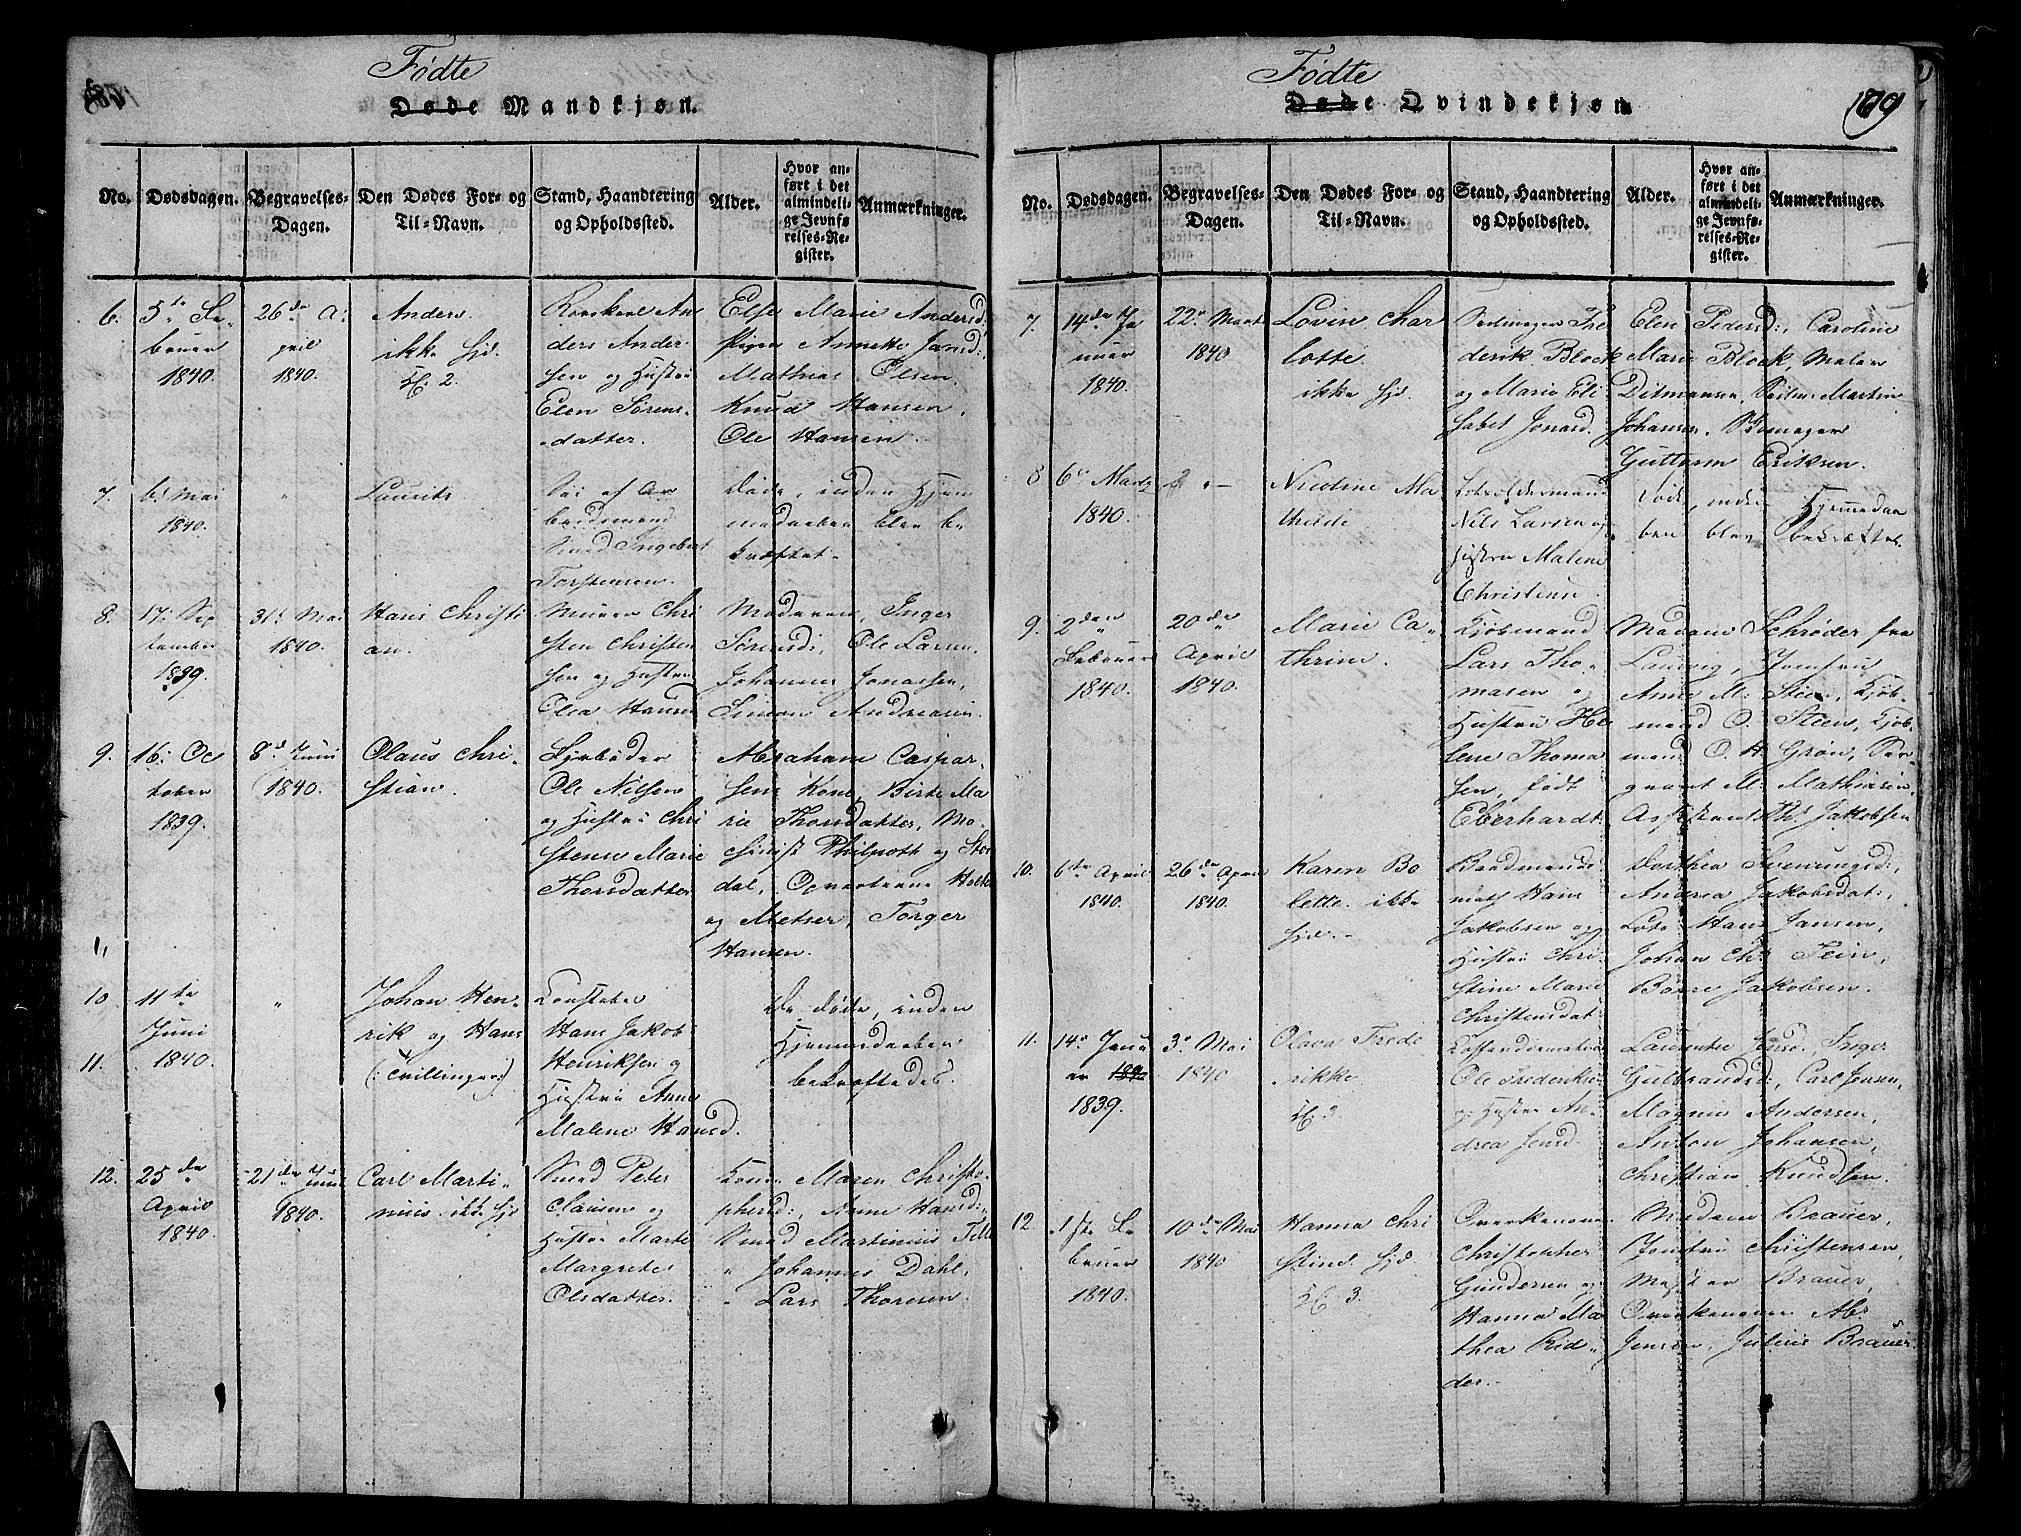 Fødte
Døde Mandkjøn.
No.
Dødsdagen.
Begravelses-
Dagen.
Den Dødes For- og
Til-Navn.
Stand, Haandtering
og Opholdssted.
Alder.
Hvor an-
ført i det
almindeli-
ge Jevnfø-
relses-Re-
gister.
Anmærkninger.
6.
5te Fe-
bruar
1840.
26de A-
pril
1840.
Anders
ikke hjd.
Kl. 2.
ders Ander
sen og Hustru
Elen Sørens-
datter.
Else Marie Andersd:
Pigen Annette Jansd:
Mathias Olsen
Knud Hansen
Ole Hansen
7.
6. Mai
1840.
"
Laurits
Søn af Ar
beidsmand
Smed Ingebret
Torstensen.
døde, inden Hjem
medaaben blev be
kræftet.
8.
17. Sep
tember
1839.
31. Mai
1840.
Hans Christi
an.
Murer Chri
sten Christen
sen og Hustru
Olea Hansd
Madamen Inger
Sørensd:, Ole Larsen,
Johannes Jonassen,
Simon Andreasen.
9.
16. Oc
tober
1839.
8de Juni
1840.
Olaus Chri-
stian.
Fyrbøder
Ole Nilsen
og Hustru Chri
stense Marie
Thorsdatter
Abraham Caspar-
sens Kone, Birte Ma
rie Thorsdatter, Ma-
chinist Philpott og
dal, Opvarterne
og Metser, Torger
Hansen.
10.
11.
11te
Juni
1840.
"
Johan Hen-
rik og Hans
(: Tvillinger :)
Constabel
Hans Jakob
Henriksen og
Hustru Anne
Malene Hansd.
De døde, inden
Hjemmedaaben
bekræftedes.
12.
25de
April
1840.
21de Juni
1840.
Carl Marti-
nius. ikke hjd
Smed Peter
Clausen og
Hustru Marte
Margrete
Olsdatter.
Konen Maren Christo-
phersd:, Anne Hansd:,
Smed Martinius
" Johannes Dahl,
" Lars Thoresen.
Fødte
Døde Qvindekjøn
179
No.
Dødsdagen.
Begravelses-
Dagen.
Den Dødes For- og
Til-Navn.
Stand, Haandtering
og Opholdssted.
Alder.
Hvor an-
ført i det
almindeli-
ge Jevnfø-
relses-Re-
gister.
Anmærkninger.
7.
14de Ja
nuar
1840.
22. Marts
1840.
Lovin Char
lotte
ikke hjd.
Seilmager Fre
derik Block
og Marie Eli
sabet Jonasd.
Elen Pedersd:, Caroline
Marie Block, Maler
Ditmansen, Seilm. Martin
Johansen,
Guttorm Eriksen.
8
6. Marts
1840.
Nicoline Ma
thilde
Lodsoldermand
Nils Larsen og
Hustru Malene
Christense.
Døde, inden Hjemmedaa
ben blev bekræftet.
9.
2den
Februar
1840.
20de
April
1840.
Marie Ca-
thrine.
Kjøbmand
Lars Tho-
masen og
Hustru He
lene Thoma
sen, født
Eberhardt.
Madam Schrøder fra
Laurvig, Jomfru
Anne M. Steen, Kjøb-
mand O. Steen, Kjøb-
mand O. H. Grøn, Ser-
geant M. Mathiasen,
Assistent Th. Jakobsen
10.
6te April
1840.
26de April
1840.
Karen Bo
lette. ikke
hjd.
Baadsmands
math Hans
Jakobsen og
Hustru Chri-
stine Marie
Christensdat
Dorthea Svenungsd:
Andrea Jakobsdat:,
Lods Hans Jansen,
Johan Chr. Fein,
Børre Jakobsen.
11.
14. Janu
ar 1840
1839.
3. Mai
1840
Olava Frede
rikke
Kl. 3.
Ole Frederiksen
og Hustru An-
drea Jensd.
Laurentse Jensd., Inger
Gulbrandsd:, Carl Jensen,
Magnus Andersen,
Anton Johansen,
Christian Knudsen.
12.
1ste Fe
bruar
1840.
10de Mai
1840
Hanna Chri
stine. hjd.
Kl. 3.
Overkanoneer
Christopher
Gundersen og
Hanna Ma
thea Rid-
der.
Madam Brauer,
Jomfru Christensen,
Mester Brauer,
Overkanoneer Abr.
Jensen, Julius Brauer.